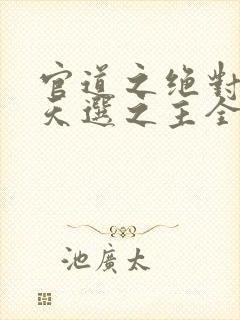 官道之绝對
天選之主全
池廣太